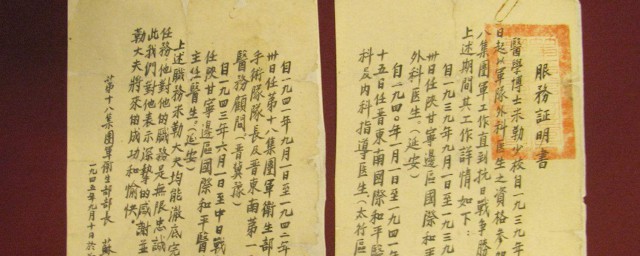 服務証明書
醫學博士米勒少校自一九三九年
日起以軍隊外科医生之資格参
八集團軍工作直到抗日戰争勝
上述期間其工作詳情如下:
自一九三九年九月一日至一九三九
卅日任陝甘寧邊區國際和平
外科医生。(延安)
自一九四〇年一月一日至一九四一
十五日任晋東南國際和平
科及内科指導医生。(太行區
自一九四一年九月一日至一九四二年
卅日任第十八集團軍衛生部
手術隊隊長及晋東南第一
醫務顧問(晋冀豫)
自一九四三年六月一日至中日戰
任陝甘寧邊區國際和平醫
主任醫生。(延安)
上述職務米勒大夫均能澈底完
任務他對他的職務是無限忠誠
此我們對他表示深摯的感謝並
勒大夫將來的成功和愉快。
第十八集團軍衛生部部長 蘇
一九四五年九月十日於